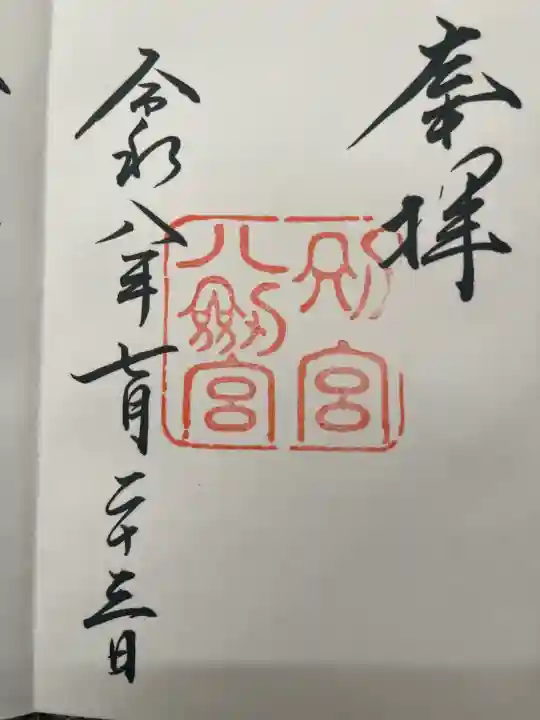 奉拝
別宮
八剱宮
令和八年七月二十三日